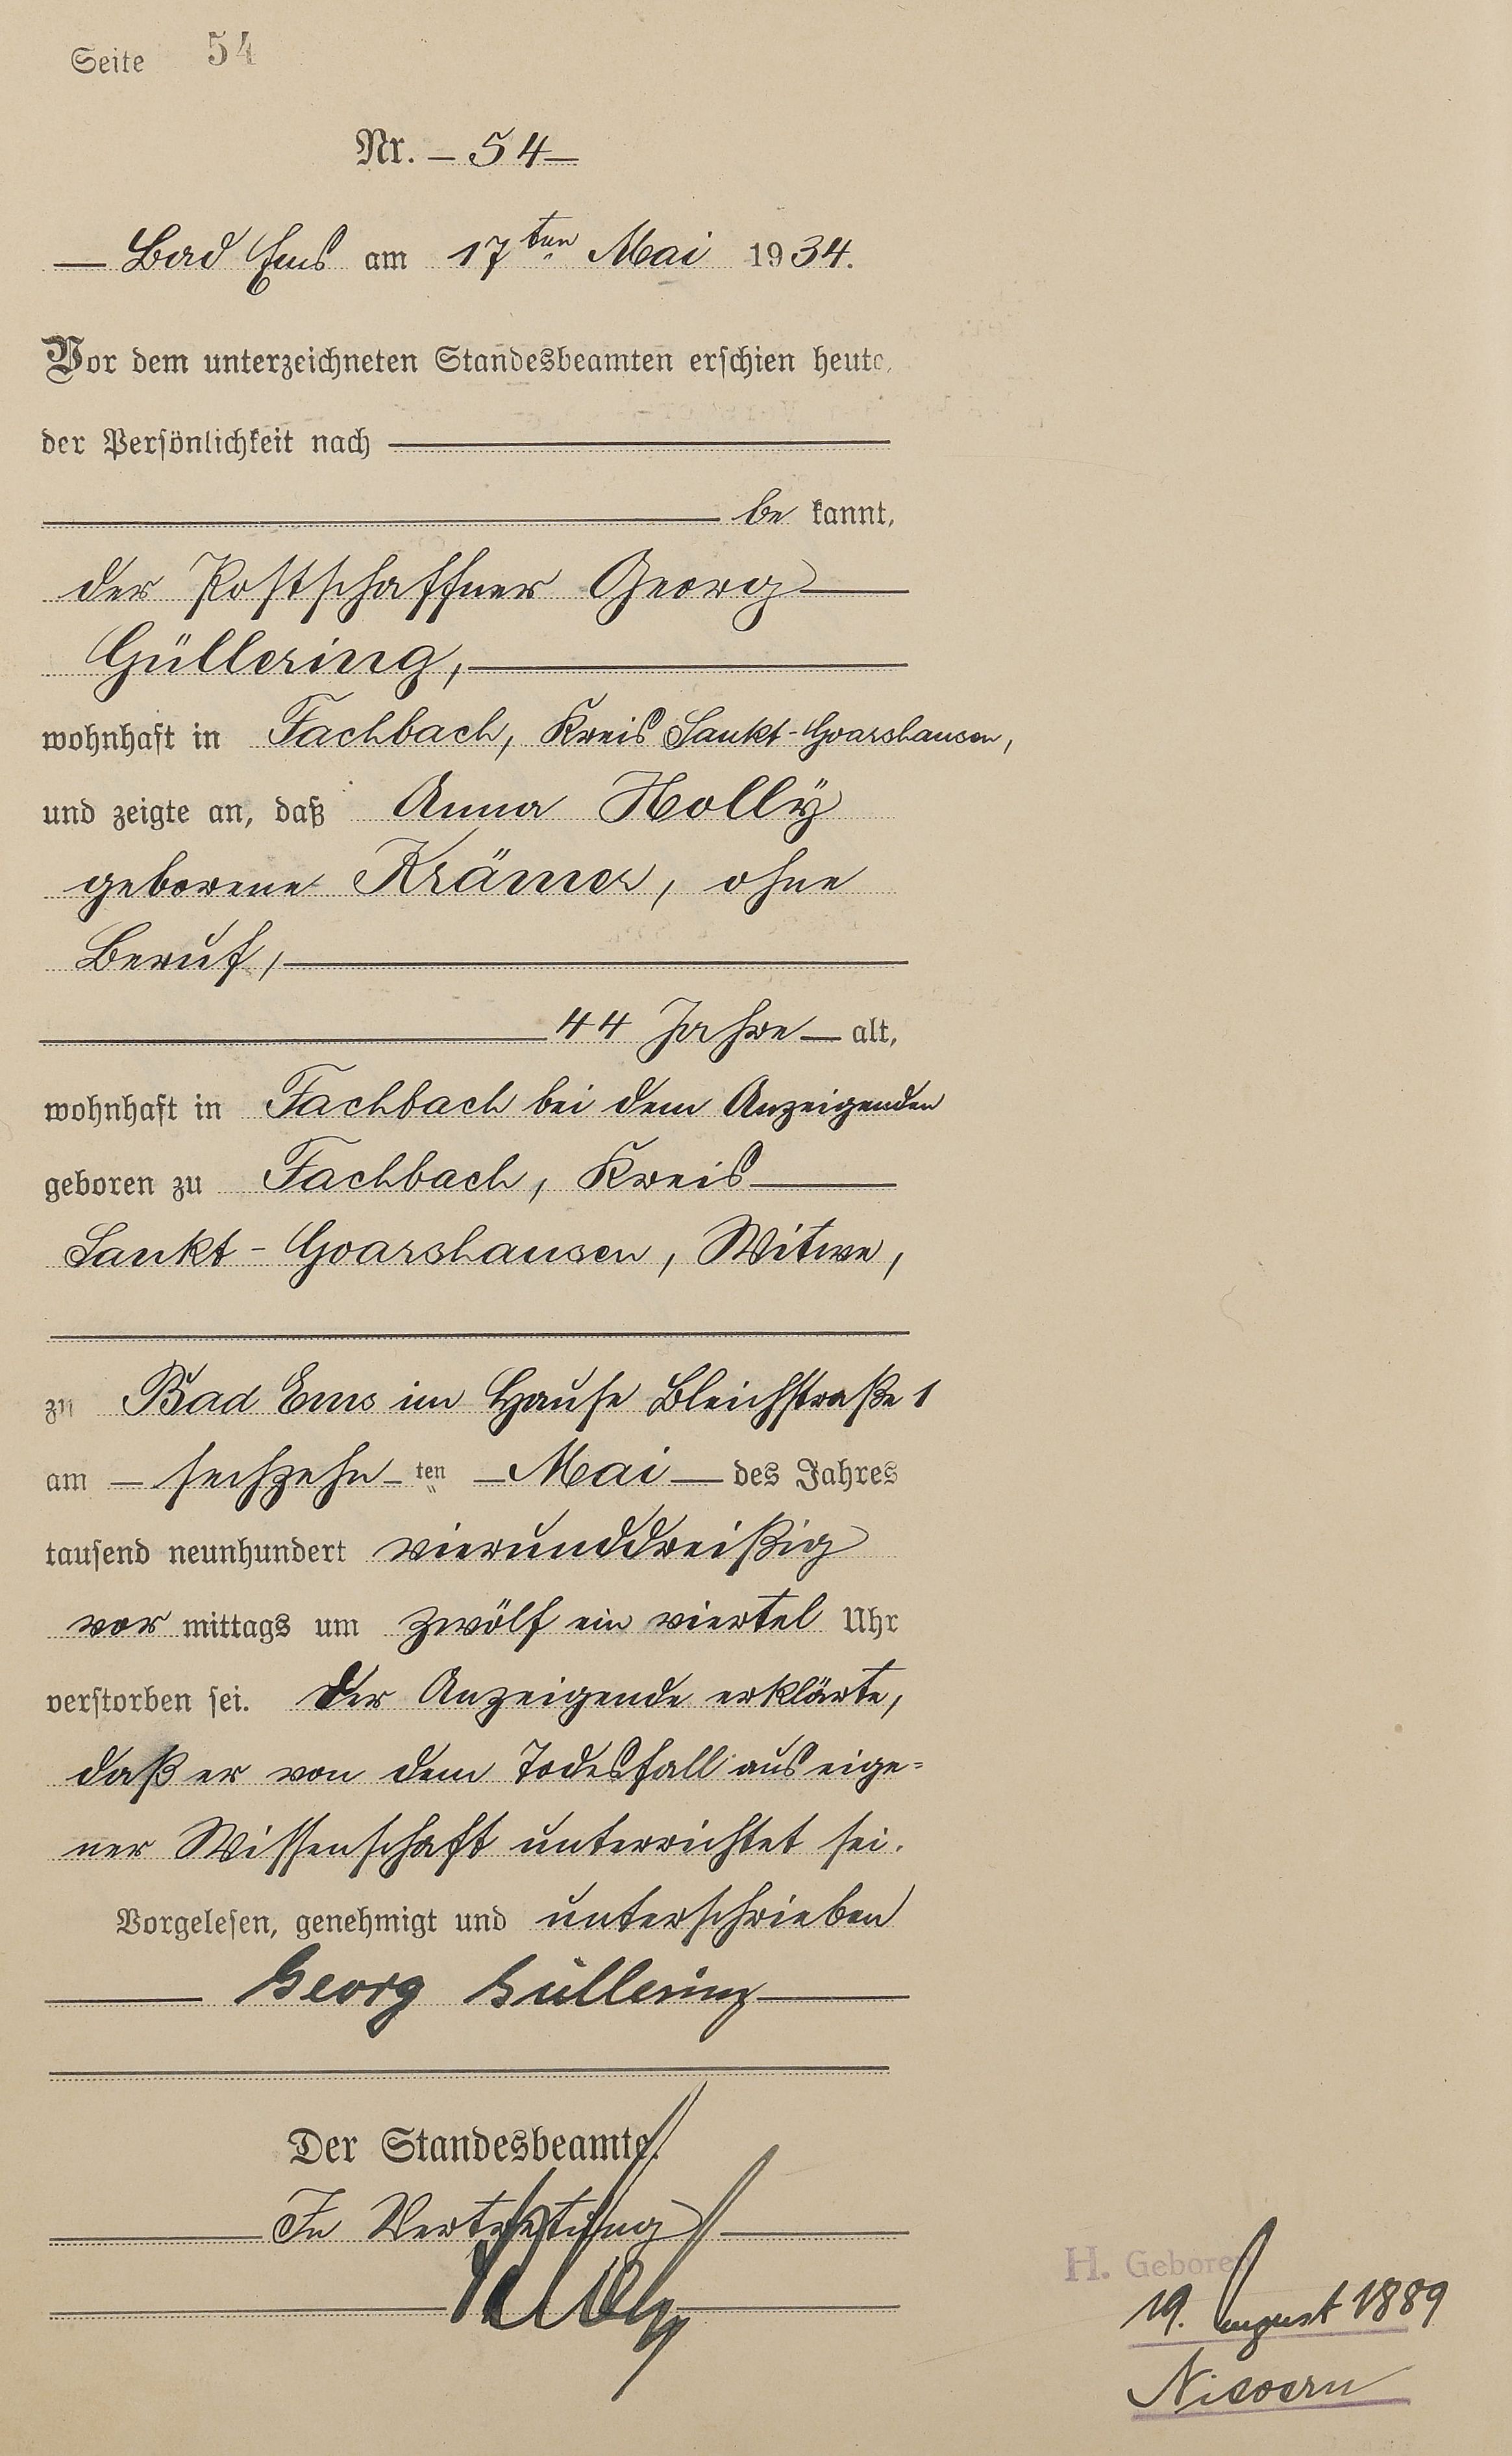 Seite 54
Nr. – 54 –
– Bad Ems am 17ten Mai 1934.
Vor dem unterzeichneten Standesbeamten erschien heute,
der Persönlichkeit nach
be kannt,
der Postschaffner Georg
Güllering,
wohnhaft in Fachbach, Kreis Sankt-Goarshausen,
und zeigte an, daß Anna Holly
geborene Krämer, ohne
Beruf,
44 Jahre – alt,
wohnhaft in Fachbach bei dem Anzeigenden
geboren zu Fachbach, Kreis
Sankt-Goarshausen, Witwe,
zu Bad Ems im Hause Bleichstraße 1
am – sechzehn – ten – Mai – des Jahres
tausend neunhundert vierunddreißig
vor mittags um zwölf ein viertel Uhr
verstorben sei. Der Anzeigende erklärte,
daß er von dem Todesfall aus eige=
ner Wissenschaft unterrichtet sei.
Vorgelesen, genehmigt und unterschrieben
Georg Güllering
Der Standesbeamte.
In Vertretung
H. Geboren
19. August 1889
Nievern